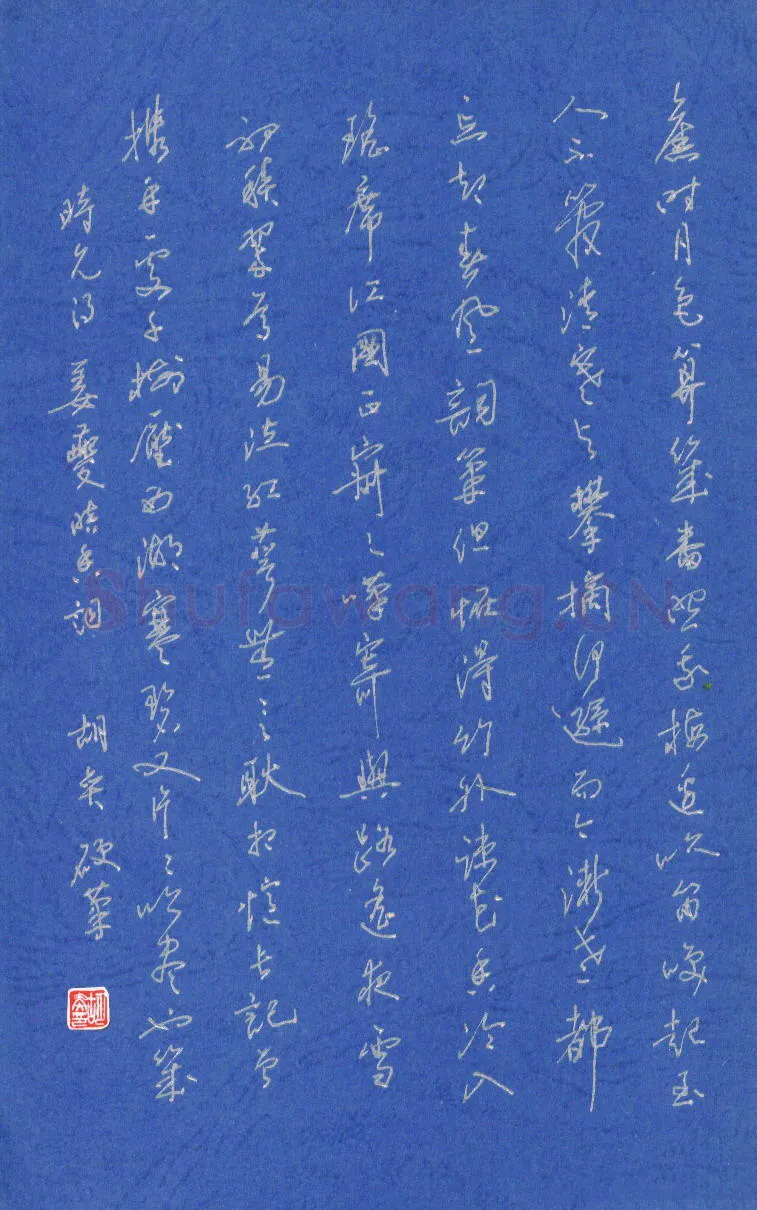 舊時月色算幾番照我梅邊吹笛喚起玉
人不管清寒與攀摘何遜而今漸老都
忘却春風詞筆但怪得竹外疏花香冷入
瑤席江國正寂〻嘆寄與路遙夜雪
初積翠尊易泣紅萼無言耿相憶長記曾
攜手處千樹壓西湖寒碧又片〻吹盡也幾
時見得 姜夔暗香詞 胡 硬筆
Shufawang.CN